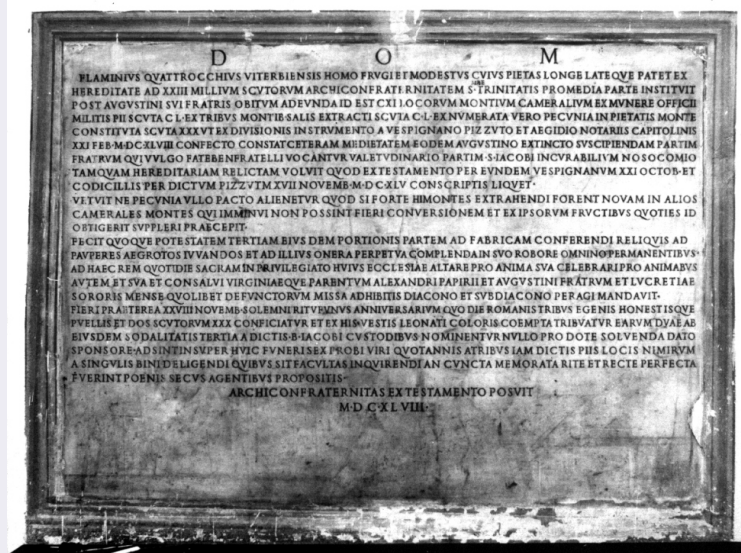 D O M
FLAMINIVS QVATTROCCHIVS VITERBIENSIS HOMO FRVGI ET MODESTVS CVIVS PIETAS LONGE LATEQVE PATET EX
HEREDITATE AD XXIII MILLIVM SCVTORVM ARCHICONFRATERNITATEM S·TRINITATIS PRO MEDIA PARTE INSTITVIT
POST AVGVSTINI SVI FRATRIS OBITVM ADEVNDA ID EST CXI LOCORVM MONTIVM CAMERALIVM EX MVNERE OFFICII
MILITIS PII SCVTA C L·EX TRIBVS MONTIB·SALIS EXTRACTI SCVTA C·L·EX NVMERATA VERO PECVNIA IN PIETATIS MONTE
CONSTITVTA SCVTA XXX VT EX DIVISIONIS INSTRVMENTO A VESPIGNANO PIZZVTO ET AEGIDIO NOTARIIS CAPITOLINIS
XXI FEB·M·DC·XLVIII CONFECTO CONSTAT CETERAM MEDIETATEM EODEM AVGVSTINO EXTINCTO SVSCIPIENDAM PARTIM
FRATRVM QVI VVLGO FATEBENFRATELLI VOCANTVR VALETVDINARIO PARTIM·S·IACOBI INCVRABILIVM NOSOCOMIO
TAMQVAM HEREDITARIAM RELICTAM VOLVIT QVOD EX TESTAMENTO PER EVNDEM VESPIGNANVM XXI OCTOB·ET
CODICILLIS PER DICTVM PIZZVTM XVII NOVEMB·M·D·C·XLV CONSCRIPTIS LIQVET·
VETVIT NE PECVNIA VLLO PACTO ALIENETVR QVOD SI FORTE HI MONTES EXTRAHENDI FORENT NOVAM IN ALIOS
CAMERALES MONTES QVI IMMINVI NON POSSINT FIERI CONVERSIONEM ET EX IPSORVM FRVCTIBVS QVOTIES ID
OBTIGERIT SVPPLERI PRAECEPIT·
FECIT QVOQVE POTESTATEM TERTIAM EIVSDEM PORTIONIS PARTEM AD FABRICAM CONFERENDI RELIQVIS AD
PAVPERES AEGROTOS IVVANDOS ET AD ILLIVS ONERA PERPETVA COMPLENDA IN SVO ROBORE OMNINO PERMANENTIBVS·
AD HAEC REM QVOTIDIE SACRAM IN PRIVILEGIATO HVIVS ECCLESIAE ALTARE PRO ANIMA SVA CELEBRARI PRO ANIMABVS
AVTEM ET SVA ET CONSALVI VIRGINIAEQVE PARENTVM ALEXANDRI PAPIRII ET AVGVSTINI FRATRVM ET LVCRETIAE
SORORIS MENSE QVOLIBET DEFVNCTORVM MISSA ADHIBITIS DIACONO ET SVBDIACONO PERAGI MANDAVIT·
FIERI PRAETEREA XXVIII NOVEMB·SOLEMNI RITV FVNVS ANNIVERSARIVM QVO DIE ROMANIS TRIBVS EGENIS HONESTISQVE
PVELLIS ET DOS SCVTORVM XXX CONFICIATVR ET EX HIS·VESTIS LEONATI COLORIS COEMPTA TRIBVATVR EARVM DVAE AB
EIVSDEM SODALITATIS TERTIA A DICTIS·B·IACOBI CVSTODIBVS NOMINENTVR NVLLO PRO DOTE SOLVENDA DATO
SPONSORE·ADSINT INSVPER HVIC FVNERI SEX PROBI VIRI QVOTANNIS A TRIBVS IAM DICTIS PIIS LOCIS NIMIRVM
A SINGVLIS BINI DELIGENDI QVIBVS SIT FACVLTAS INQVIRENDI AN CVNCTA MEMORATA RITE ET RECTE PERFECTA
FVERINT POENIS SECVS AGENTIBVS PROPOSITIS·
ARCHICONFRATERNITAS EX TESTAMENTO POSVIT
M·D C·XL VIII·